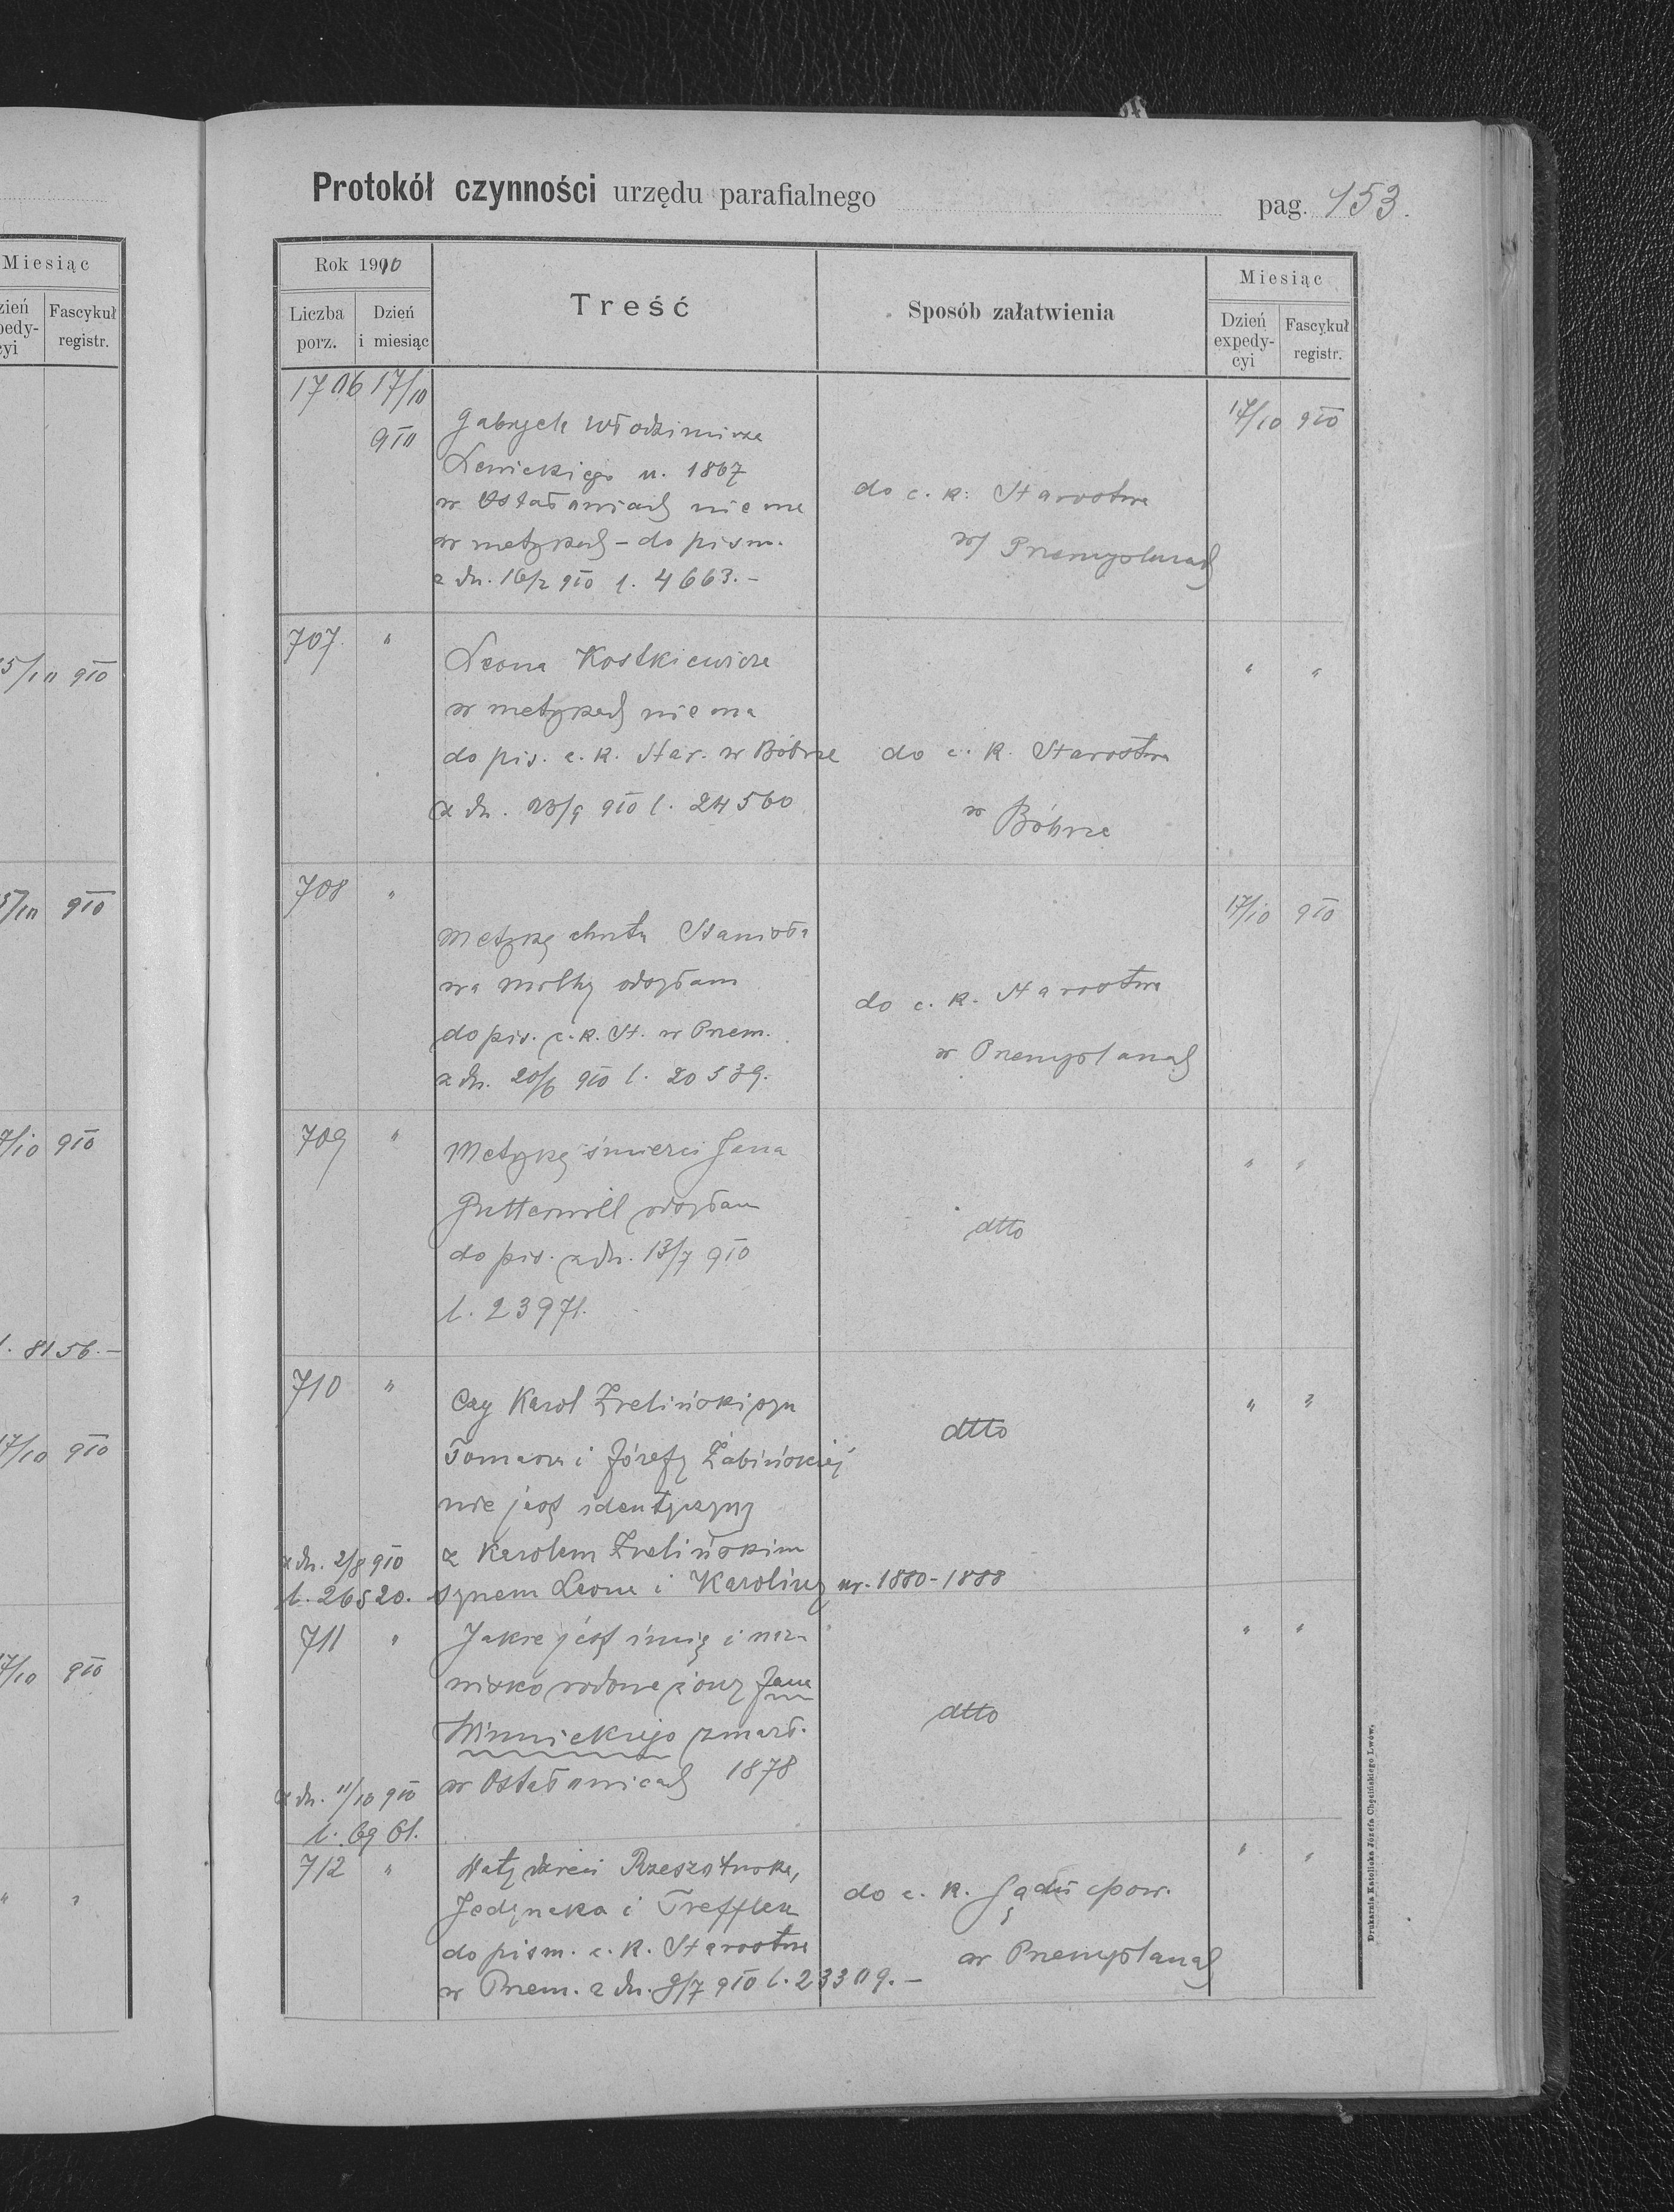 Protokół czynności urzędu parafialnego pag. 153.
Miesiąc
Fascykuł
registr.
Rok 1910
Liczba porz.
Dzień i miesiąc
Treść
Sposób załatwienia
Miesiąc
Dzień expedy-cyi
Fascykuł registr.
5/10 910
5/10 910
7/10 910
l. 8156.–
17/10 910
17/10 910
1706 17/10 910
Gabryela Włodzimierza
Lewickiego u. 1867
w Ostałowicach nie ma
w metrykach – do pism.
z dn. 16/2 910 l. 4663.–
do c. k. Starostwa
w Przemyślanach
17/10 910
707. "
Leona Kostkiewicza
w metrykach nie ma
do pis. c. k. Star. w Bóbrce
z dn. 23/9 910 l. 24560
do c. k. Starostwa
w Bóbrce
" "
708 "
Metrykę chrztu Stanisła
wa odsyłam
do pis. c. k. St. w Przem.
z dn. 20/6 910 l. 20539.
do c. k. Starostwa
w Przemyślanach
17/10 910
709 "
Metrykę śmierci Jana
odsyłam
do pis. z dn. 13/7 910
l. 23971.
dtto
" "
710 "
Czy Karol Zieliński syn
Tomasza i Józefy Żabińskiej
nie jest identyczny
z Karolem Zielińskim
synem Leona i Karoliny ur. 1880-1888
z dn. 2/8 910
l. 26520.
dtto
" "
711 "
Jakie jest imię i naz-
wisko rodowe żony Jana
Winnickiego zmarł.
w Ostałowicach 1878
z dn. 11/10 910
l. 6961.
dtto
" "
712 "
Daty dzieci
Jedynaka i Trefflera
do pism. c. k. Starostwa
w Przem. z dn. 9/7 910 l. 23309.–
do c. k. Sądu pow.
w Przemyślanach
" "
Drukarnia Katolicka Józefa Chęcińskiego Lwów.